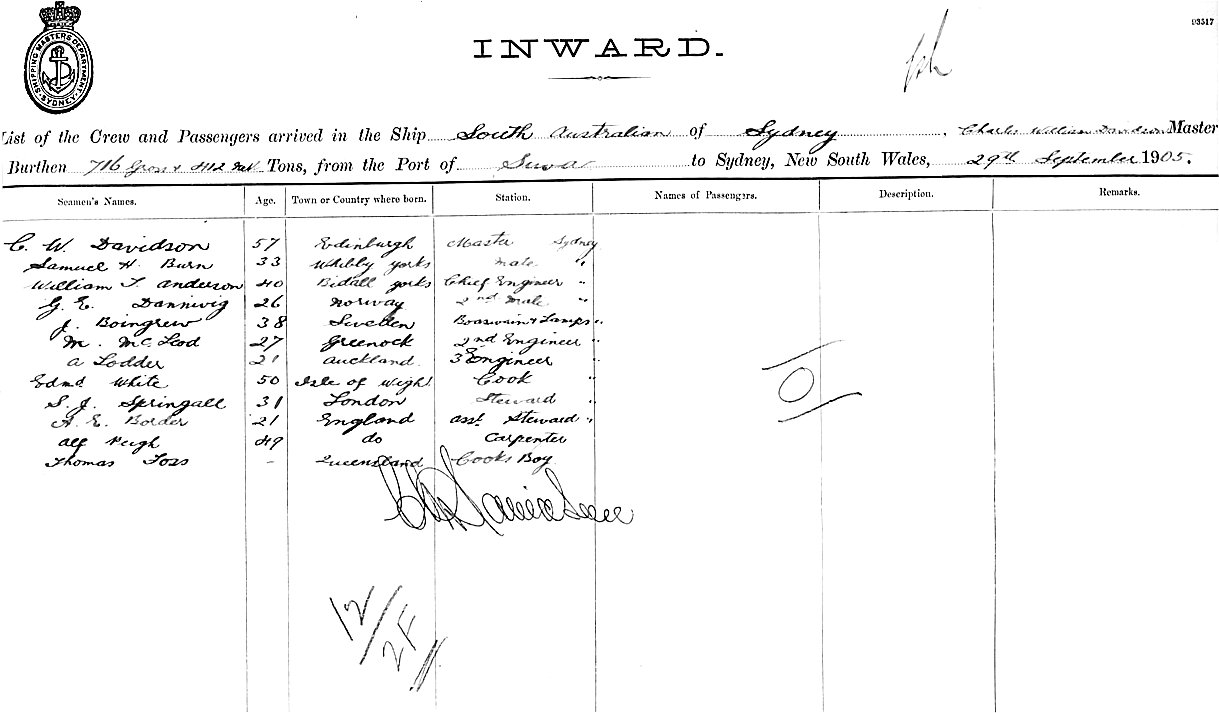 93517
SHIPPING MASTERS DEPARTMENT
SYDNEY
INWARD.
List of the Crew and Passengers arrived in the Ship South Australian of Sydney, Charles William Davidson Master
Burthen 716 Gross & 412 Net Tons, from the Port of Suva to Sydney, New South Wales, 29th September 1905.
Seamen's Names. Age. Town or Country where born. Station. Names of Passengers. Description. Remarks.
C. W. Davidson 57 Edinburgh Master Sydney
Samuel H. Burn 33 Whitby yorks mate "
William T. Anderson 40 yorks Chief Engineer "
G. E. Dannivig 26 Norway 2nd Mate "
J. Boingrew 38 Sweden Boatswain & Lamps "
M. McLeod 27 Greenock 2nd Engineer "
A Lodder 21 Auckland 3 Engineer "
Edmd White 50 Isle of Wight Cook "
S. J. Springall 31 London Steward "
A. E. Border 21 England asst Steward "
Alf 49 do Carpenter
Thomas Foss - Queensland Cooks Boy
CW Davidson
0
12/2F